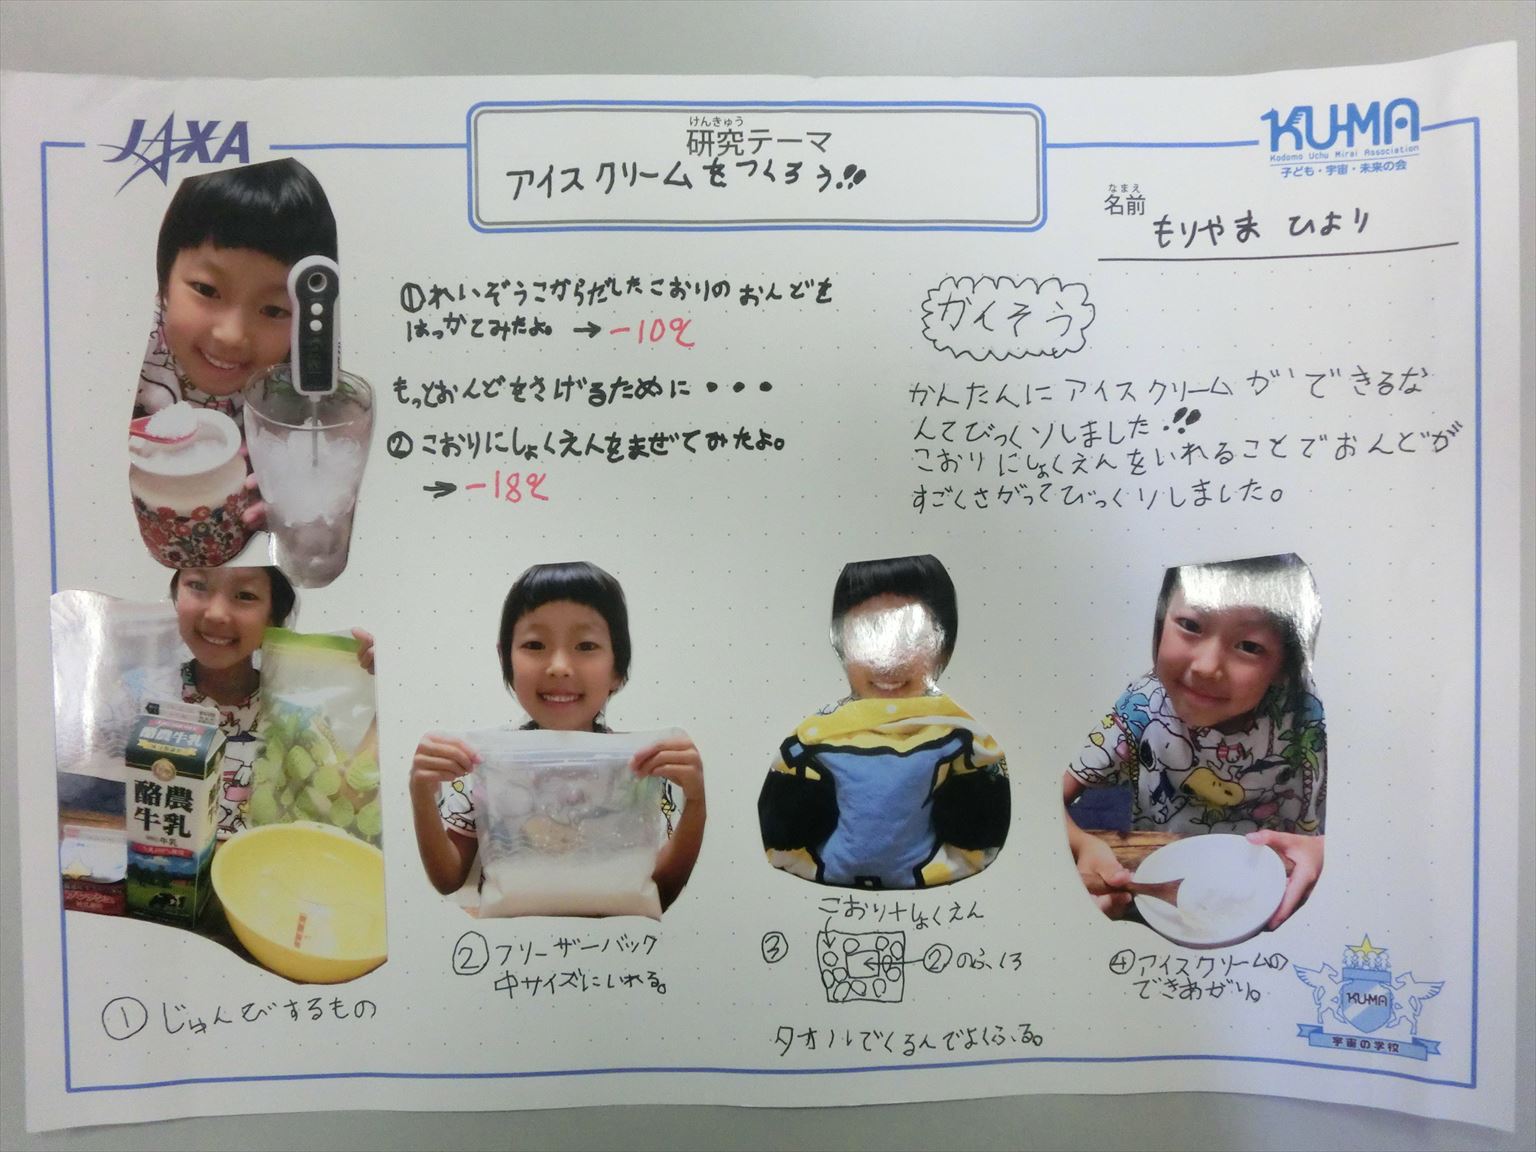 JAXA
けんきゅう
研究テーマ
アイスクリームをつくろう!!
KU-MA
Kodomo Uchu Mirai Association
子ども・宇宙・未来の会
なまえ
名前
もりやま ひより
①れいぞうこからだしたこおりのおんどを
はっかてみたよ。→-10℃
もっとおんどをさげるために・・・
②こおりにしょくえんをまぜてみたよ。
→-18℃
かんそう
かんたんにアイスクリームができるな
んてびっくりしました!!
こおりにしょくえんをいれることでおんどが
すごくさがってびっくりしました。
酪農牛乳
酪農
牛乳
①じゅんびするもの
②フリーザーバック
中サイズにいれる。
こおり+しょくえん
③
②のふくろ
タオルでくるんでよくふる。
④アイスクリームの
できあがり。
KU-MA
宇宙の学校